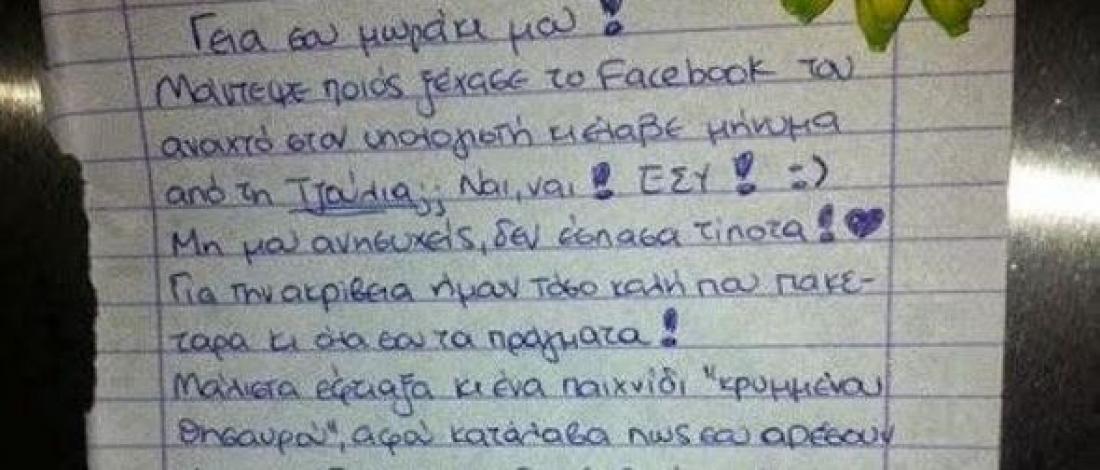 Γεια σου μωράκι μου!
Μάντεψε ποιός ξέχασε το Facebook του
ανοιχτό στον υπολογιστή κι έλαβε μήνυμα
από τη Τζούλια;; Ναι, ναι! ΕΣΥ! :)
Μη μου ανησυχείς, δεν έσπασα τίποτα!♥
Για την ακρίβεια ήμουν τόσο καλή που πακέ-
ταρα κι όλα σου τα πράγματα!
Μάλιστα έφτιαξα κι ένα παιχνίδι "κρυμμένου
θησαυρού", αφού κατάλαβα πως σου αρέσουν